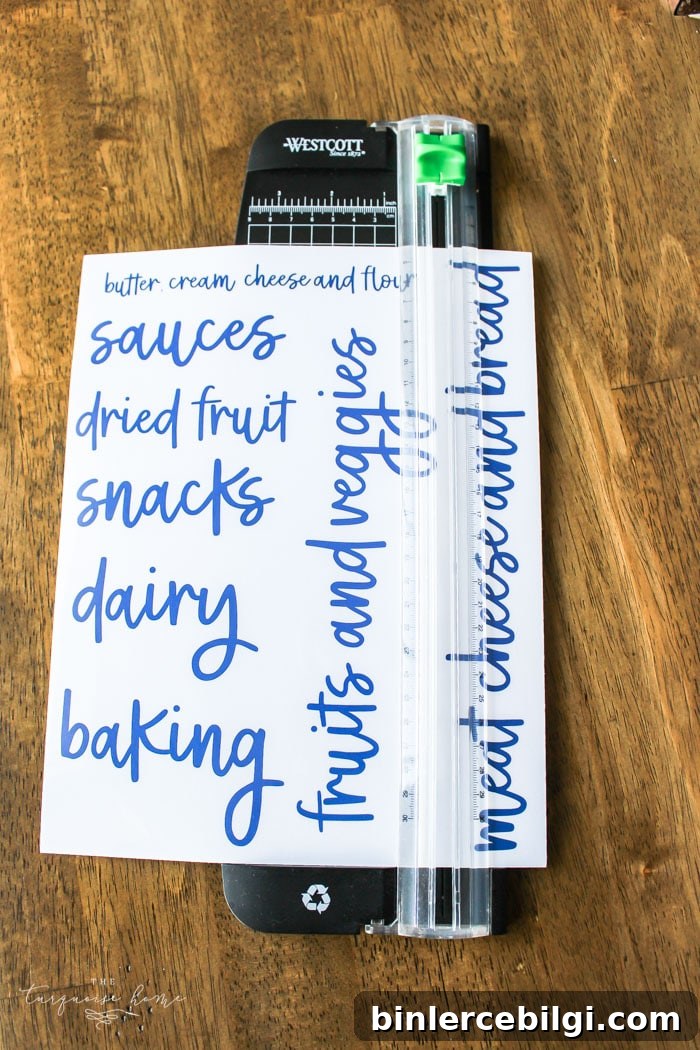 WESTCOTT
Since 1872
butter, cream cheese and flour
sauces
dried fruit
snacks
dairy
baking
fruits and veggies
meat cheese and bread
THE
turquoise home
binlercebilgi.com